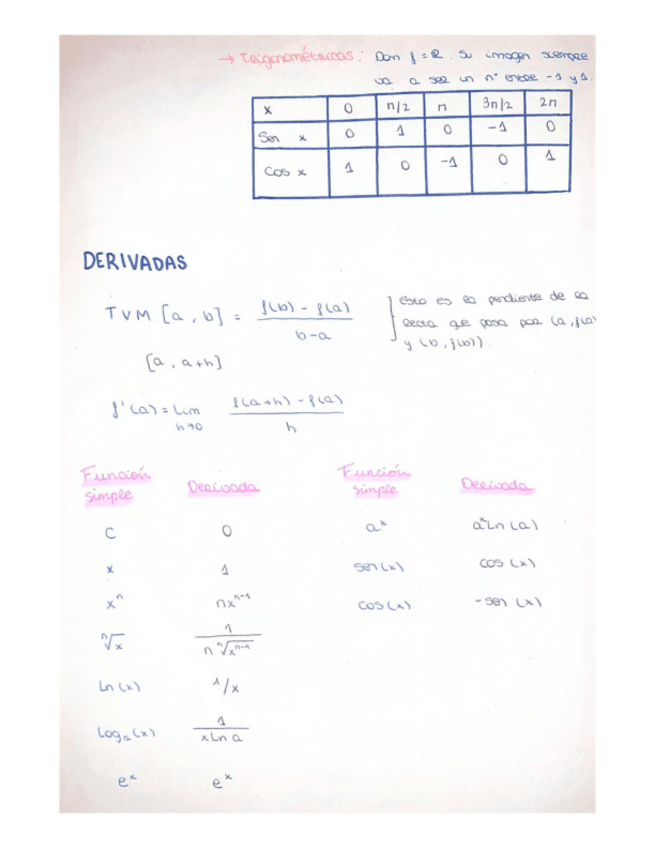 → Trigonométricas: Dom f = ℝ. Su imagen siempre
va a ser un nº entre -1 y 1.
x 0 π/2 π 3π/2 2π
Sen x 0 1 0 -1 0
Cos x 1 0 -1 0 1
DERIVADAS
TVM [a, b] = f(b) - f(a) / b-a
esto es la pendiente de la
recta que pasa por (a, f(a)
y (b, f(b)).
[a, a+h]
f'(a) = lim h→0 f(a+h) - f(a) / h
Función simple Derivada Función simple Derivada
C 0 aˣ aˣ Ln (a)
x 1 sen(x) cos (x)
xⁿ nxⁿ⁻¹ cos(x) -sen (x)
ⁿ√x 1 / n ⁿ√xⁿ⁻ⁿ
Ln (x) 1/x
Logₐ(x) 1 / x Ln a
eˣ eˣ